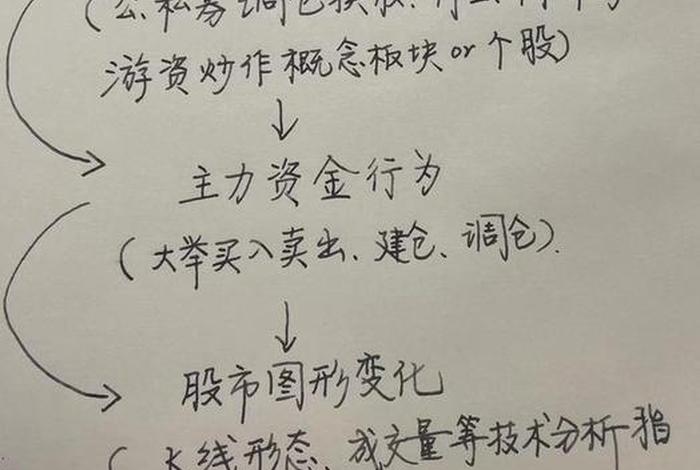 (公、私募调仓换股、
游资炒作概念板块or个股)
主力资金行为
(大举买入卖出、建仓、调仓).
股市图形变化
(K线形态、成交量等技术分析指